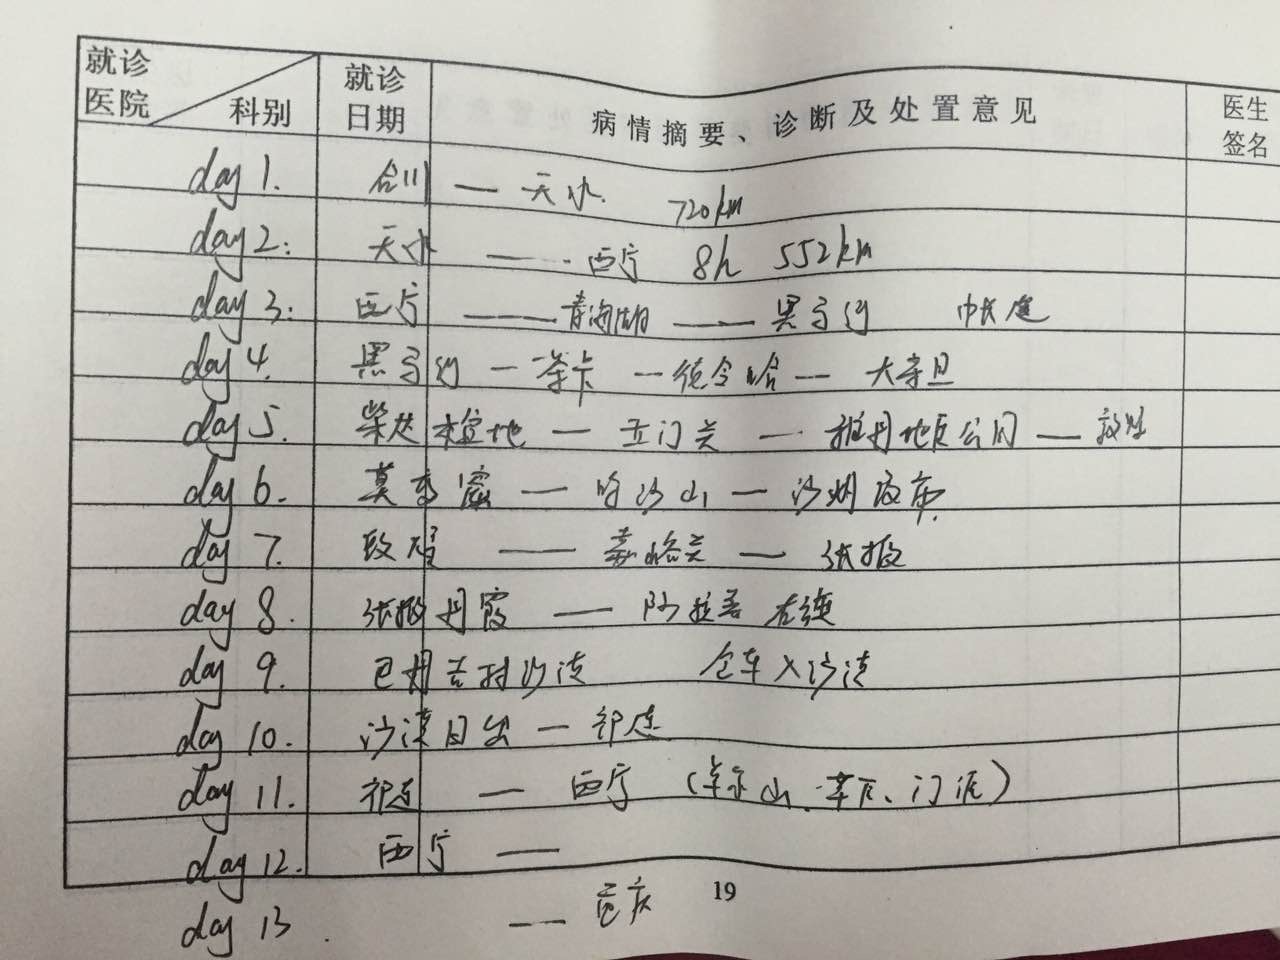 就诊医院 科别 就诊日期 病情摘要、诊断及处置意见 医生签名
day 1. 合川 — 天水. 720km
day 2: 天水 — 西宁 8h 552km
day 3: 西宁 — 青海湖 — 黑马河 帐篷
day 4. 黑马河 — 茶卡 — 德令哈 — 大柴旦
day 5. 柴达木盆地 — 玉门关 — 雅丹地质公园 — 敦煌
day 6. 莫高窟 — 鸣沙山 — 沙州夜市.
day 7. 敦煌 — 嘉峪关 — 张掖
day 8. 张掖丹霞 — 阿拉善右旗
day 9. 巴丹吉林沙漠 包车入沙漠
day 10. 沙漠日出 — 祁连
day 11. 祁连 — 西宁 (卓尔山、草原、门源)
day 12. 西宁 —
day 13. — 重庆
19